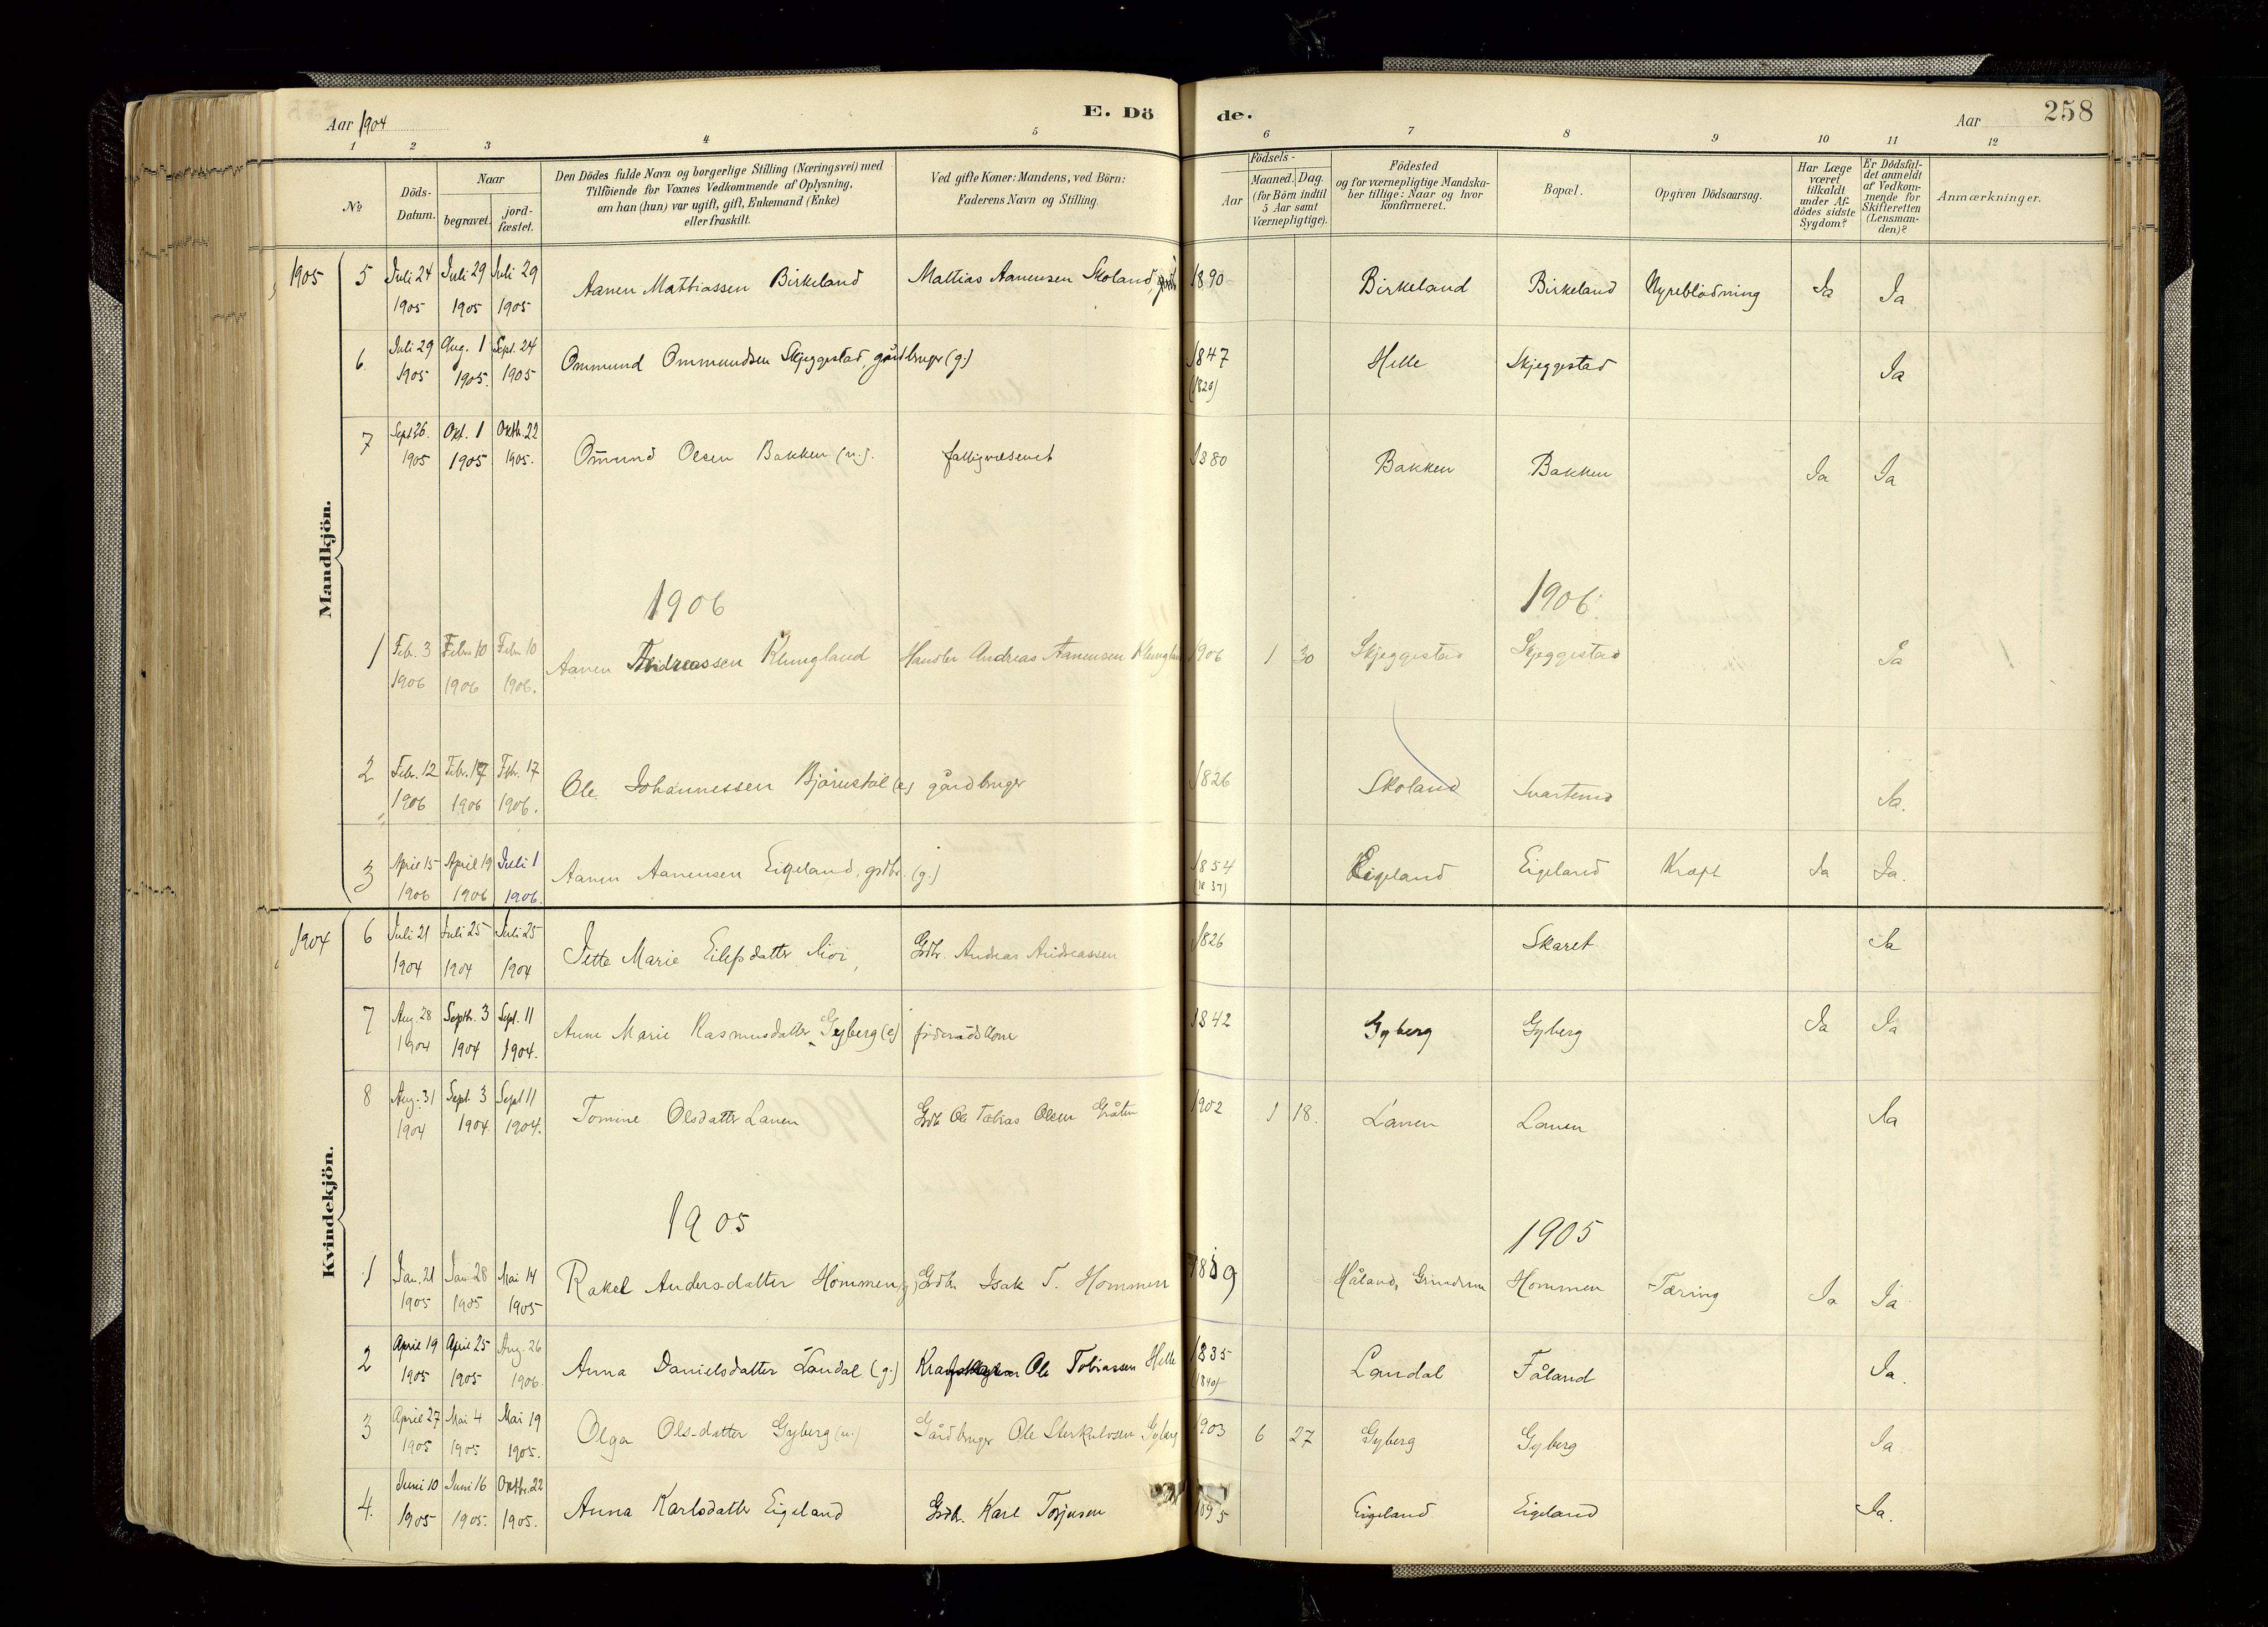 Aar 1904
E. Dö
de.
Aar
258
1 2 3 4 5 6 7 8 9 10 11 12
№
Döds-Datum.
Naar
begravet.
jord-fæstet.
Den Dödes fulde Navn og borgerlige Stilling (Næringsvei) med
Tilföiende for Voxnes Vedkommende af Oplysning,
om han (hun) var ugift, gift, Enkemand (Enke)
eller fraskilt.
Ved gifte Koner: Mandens, ved Börn:
Faderens Navn og Stilling.
Födsels-
Aar
Maaned. Dag.
(for Börn indtil
5 Aar samt
Værnepligtige).
Födested
og for værnepligtige Mandska-
ber tillige: Naar og hvor
konfirmeret.
Bopæl.
Opgiven Dödsaarsag.
Har Læge
været
tilkaldt
under Af-
dödes sidste
Sygdom?
Er Dödsfal-
det anmeldt
af Vedkom-
mende for
Skifteretten
(Lensman-
den)?
Anmærkninger.
Mandkjön.
1905 5 Juli 24 1905 Juli 29 1905 Juli 29 1905 Aanen Mathiassen Birkeland Mathias Aanensen Skoland, 1890 Birkeland Birkeland Nyreblödning Ja Ja
6. Juli 29 1905 Aug. 1 1905. Sept. 24 1905 Ommund Ommundsen Skjeggestad, gårdbruger (g.) 1847 Helle Skjeggestad Ja
7 Sept 26. 1905 Okt. 1 1905 Oktb. 22 1905. Omund Olsen Bakken (u.). fattigvæsenet 1880 Bakken Bakken Ja Ja
1906
1906.
1 Feb. 3 1906 Febr. 10 1906 Febr. 10 1906. Aanen Andreassen Klungland Handler Andreas Aanensen Klungland 1906 1 30 Skjeggestad Skjeggestad Ja
2 Febr. 12 1906 Febr. 17 1906 Febr. 17 1906. Ole Johannessen Bjørnstøl (e) gårdbruger 1826 Skoland Svartemo Ja.
3 April 15 1906 April 19 1906 Juli 1 1906. Aanen Aanensen Eigeland, grdbr. (g.) 1854 Eigeland Eigeland Kræft Ja Ja.
Kvindekjön.
1904 6 Juli 21 1904 Juli 25 1904 Juli 25 1904 Jette Marie Eilefsdatter Moi, Grdbr. Andreas Andreassen 1826 Skaret Ja
7 Aug. 28 1904 Septb. 3 1904 Sept. 11 1904. Anne Marie Rasmusdatter Gyberg (e) föderådskone 1842 Gyberg Gyberg Ja Ja
8 Aug. 31 1904 Sept. 3 1904 Sept 11 1904. Tomine Olsdatter Lanen Grdb Ole Tobias Olsen 1902 1 18. Lanen Lanen Ja
1905
1905
1 Jan. 21 1905 Jan 28 1905 Mai 14 1905 Rakel Andersdatter Hommen (g) Grdbr Isak T. Hommen 1819 Håland, Grindum Hommen Tæring Ja Ja
2 April 19 1905 April 25 1905 Aug. 26 1906. Anna Danielsdatter Landal (g.) Ole Tobiassen Helle 1835 (1840) Landal Fåland Ja.
3 April 27 1905 Mai 4 1905 Mai 19 1905. Olga Ols-datter Gyberg (u.) Gårdbruger Ole Sterkulvsen Gyberg 1903 6 27 Gyberg Gyberg Ja
4. Juni 10 1905 Juni 16 1905. Oktbr. 22 1905. Anna Karlsdatter Eigeland Grdbr. Karl Torjusen 1895 Eigeland Eigeland Ja.